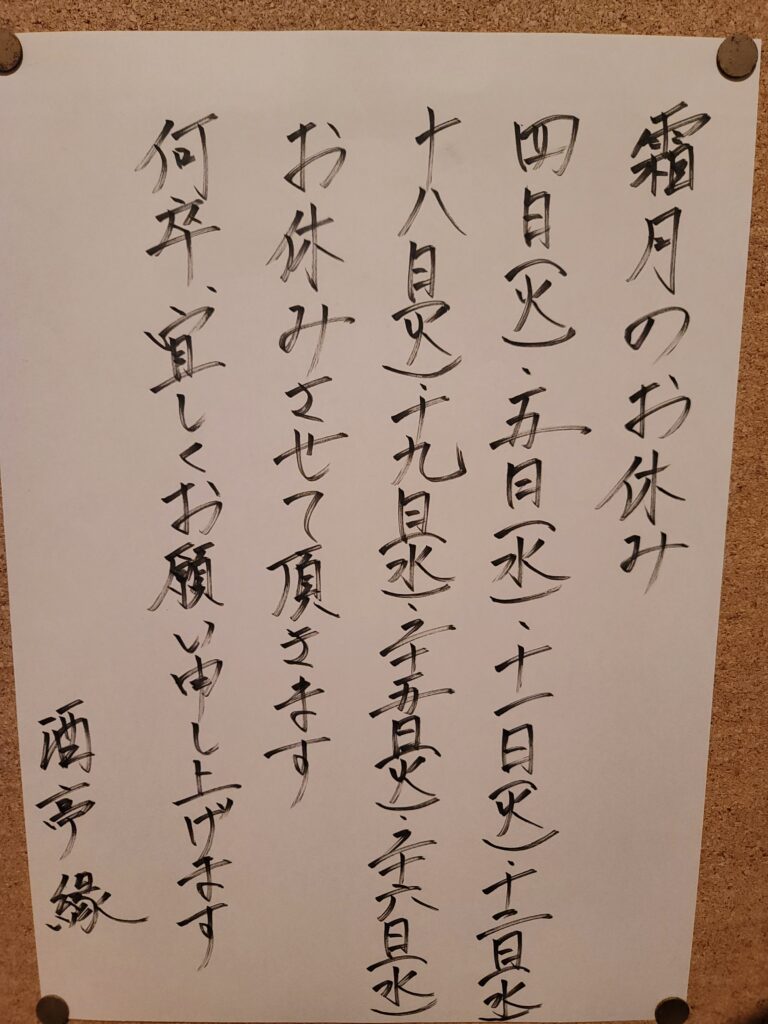 霜月のお休み
四日(火)、五日(水)、十一日(火)、十二日(水)
十八日(火)、十九日(水)、二十五日(火)、二十六日(水)
お休みさせて頂きます
何卒、宜しくお願い申し上げます
酒亭 縁